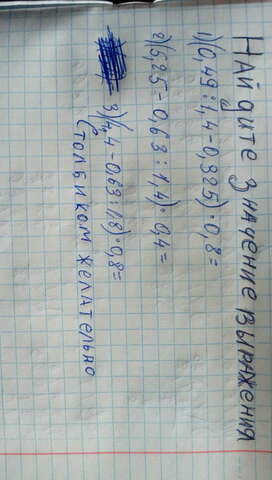 НАЙДИТЕ ЗНАЧЕНИЕ ВЫРАЖЕНИЯ
1) (0,49 : 1,4 - 0,325) · 0,8 =
2) (5,25 - 0,63 : 1,4) · 0,4 =
3) (4,4 - 0,63 : 1,8) · 0,8 =
(СТОЛБИКОМ ЖЕЛАТЕЛЬНО